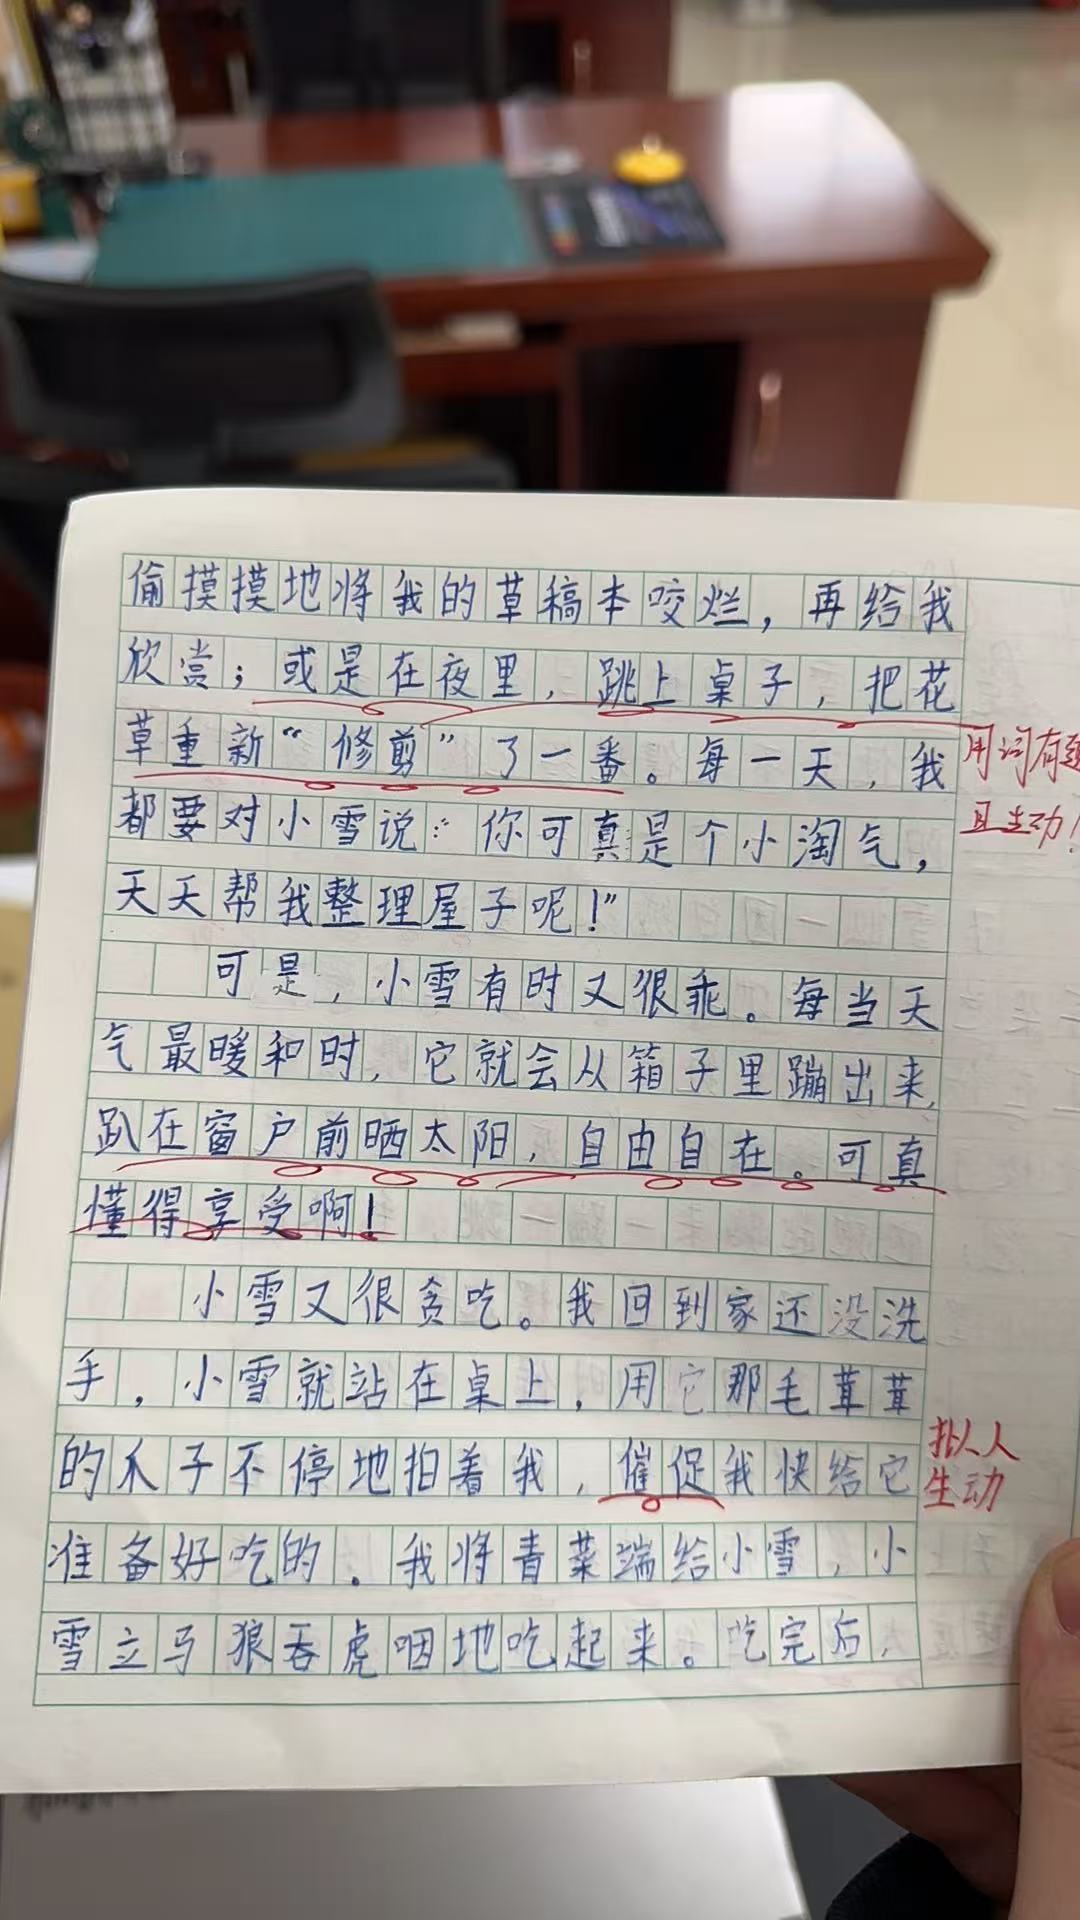 偷摸摸地将我的草稿本咬烂，再给我
欣赏；或是在夜里，跳上桌子，把花
草重新“修剪”了一番。每一天，我
都要对小雪说：“你可真是个小淘气，
天天帮我整理屋子呢！”
可是，小雪有时又很乖。每当天
气最暖和时，它就会从箱子里蹦出来，
趴在窗户前晒太阳，自由自在。可真
懂得享受啊！
小雪又很贪吃。我回到家还没洗
手，小雪就站在桌上，用它那毛茸茸
的爪子不停地拍着我，催促我快给它
准备好吃的。我将青菜端给小雪，小
雪立马狼吞虎咽地吃起来。吃完后，
用词有趣
且生动！
拟人
生动